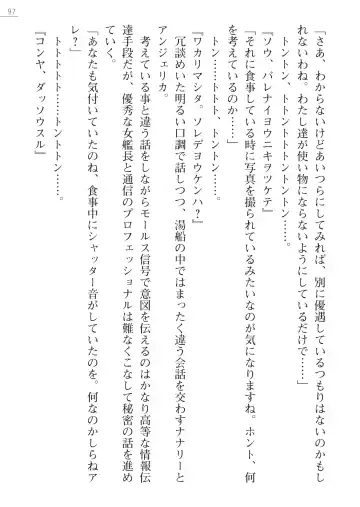 97
「さあ、わからないけどあいつらにしてみれば、別に優遇しているつもりはないのかもし
れないわね。わたし達が使い物にならないようにしているだけで……」
トントン、トトトトトントントン……。
『ソウ、バレナイヨウニキヲツケテ』
「それに食事している時に写真を撮られているみたいなのが気になりますね。ホント、何
を考えているのか……」
トン……トトト、トントン……。
『ワカリマシタ。ソレデヨウケンハ？』
冗談めいた明るい口調で話しつつ、湯船の中ではまったく違う会話を交わすナナリーと
アンジェリカ。
考えている事と違う話をしながらモールス信号で意図を伝えるのはかなり高等な情報伝
達手段だが、優秀な女艦長と通信のプロフェッショナルは難なくこなして秘密の話を進め
ていく。
「あなたも気付いていたのね、食事中にシャッター音がしていたのを。何なのかしらねア
レ？」
トトトトト……トントン……。
『コンヤ、ダッソウスル』